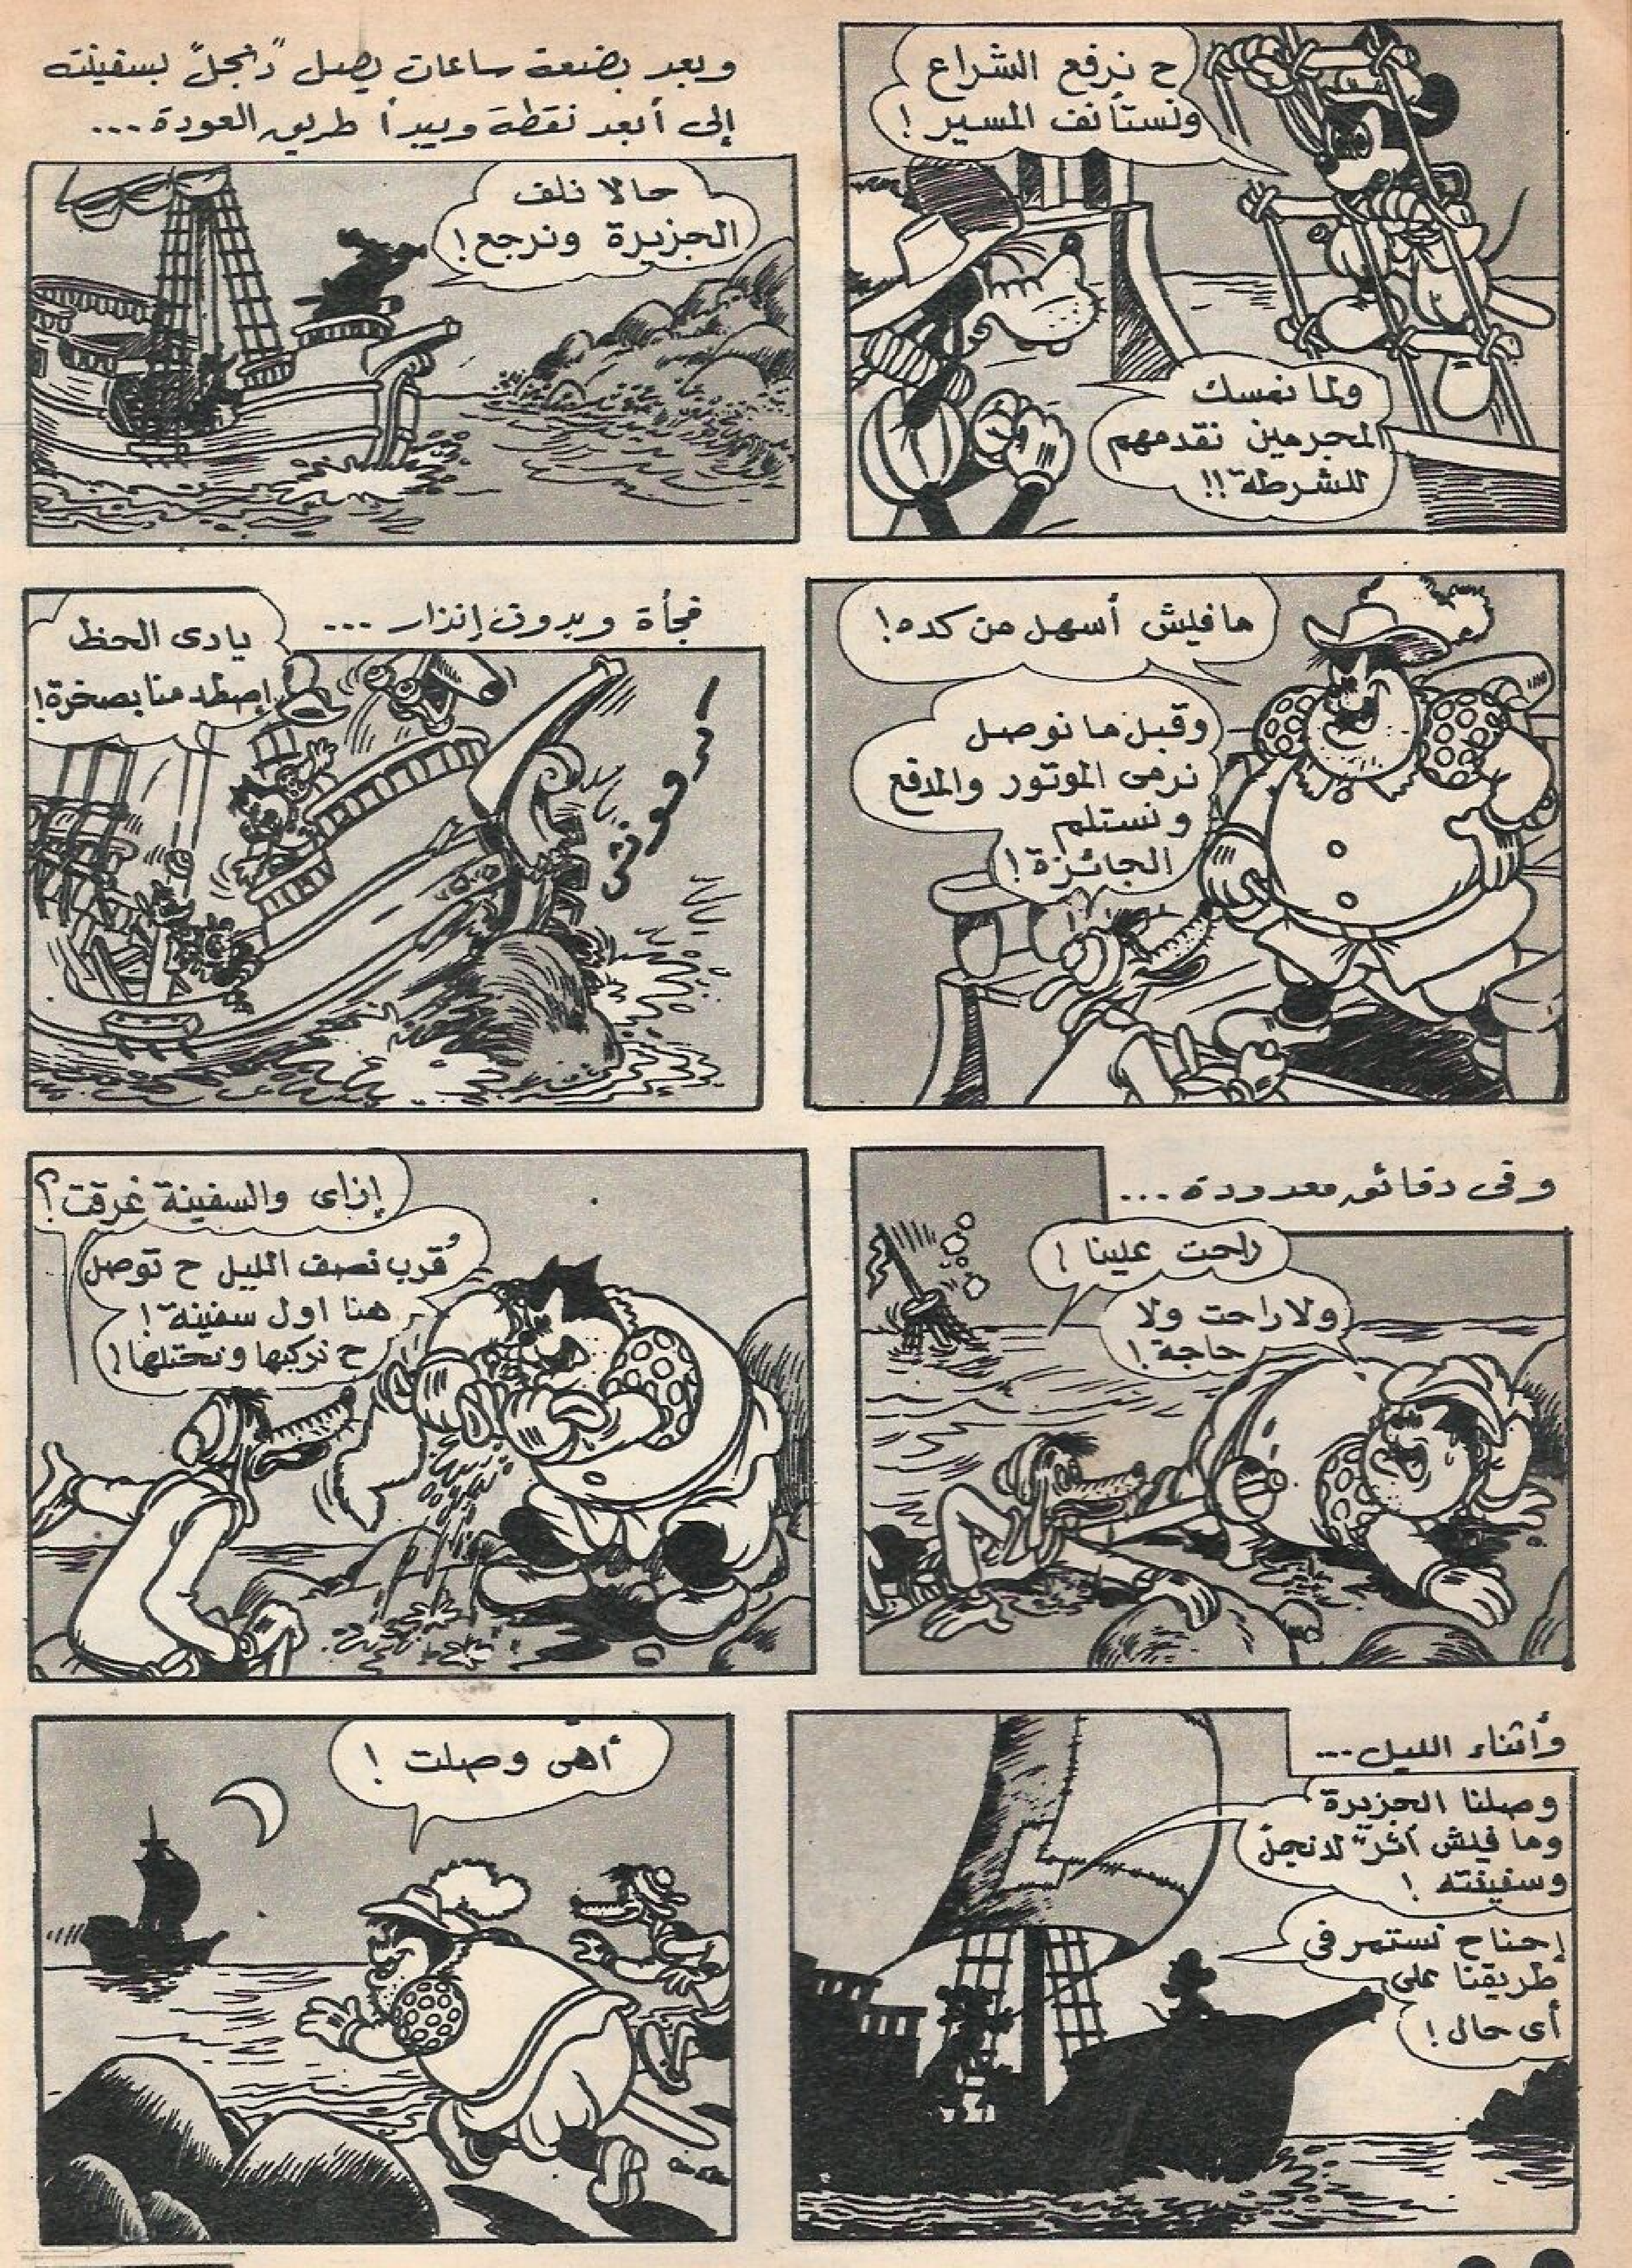 ح نرفع الشراع
ونستأنف المسير !
ولما نمسك
المجرمين نقدمهم
للشرطة !!
وبعد بضعة ساعات يصل "دنجل" بسفينته
إلى أبعد نقطة ويبدأ طريق العودة ...
حالا نلف
الجزيرة ونرجع !
مافيش أسهل من كده !
وقبل ما نوصل
نرمى الموتور والمدفع
ونستلم
الجائزة !
فجأة وبدون إنذار ...
يادى الحظ
إصطدمنا بصخرة !
وفى دقائق معدودة ...
راحت علينا !
ولا راحت ولا
حاجة !
إزاى والسفينة غرقت ؟
قرب نصف الليل ح توصل
هنا اول سفينة !
ح نركبها ونحتلها !
وأثناء الليل ...
وصلنا الجزيرة
وما فيش أثر "لدنجل"
وسفينته !
إحنا ح نستمر فى
طريقنا على
أى حال !
أهى وصلت !